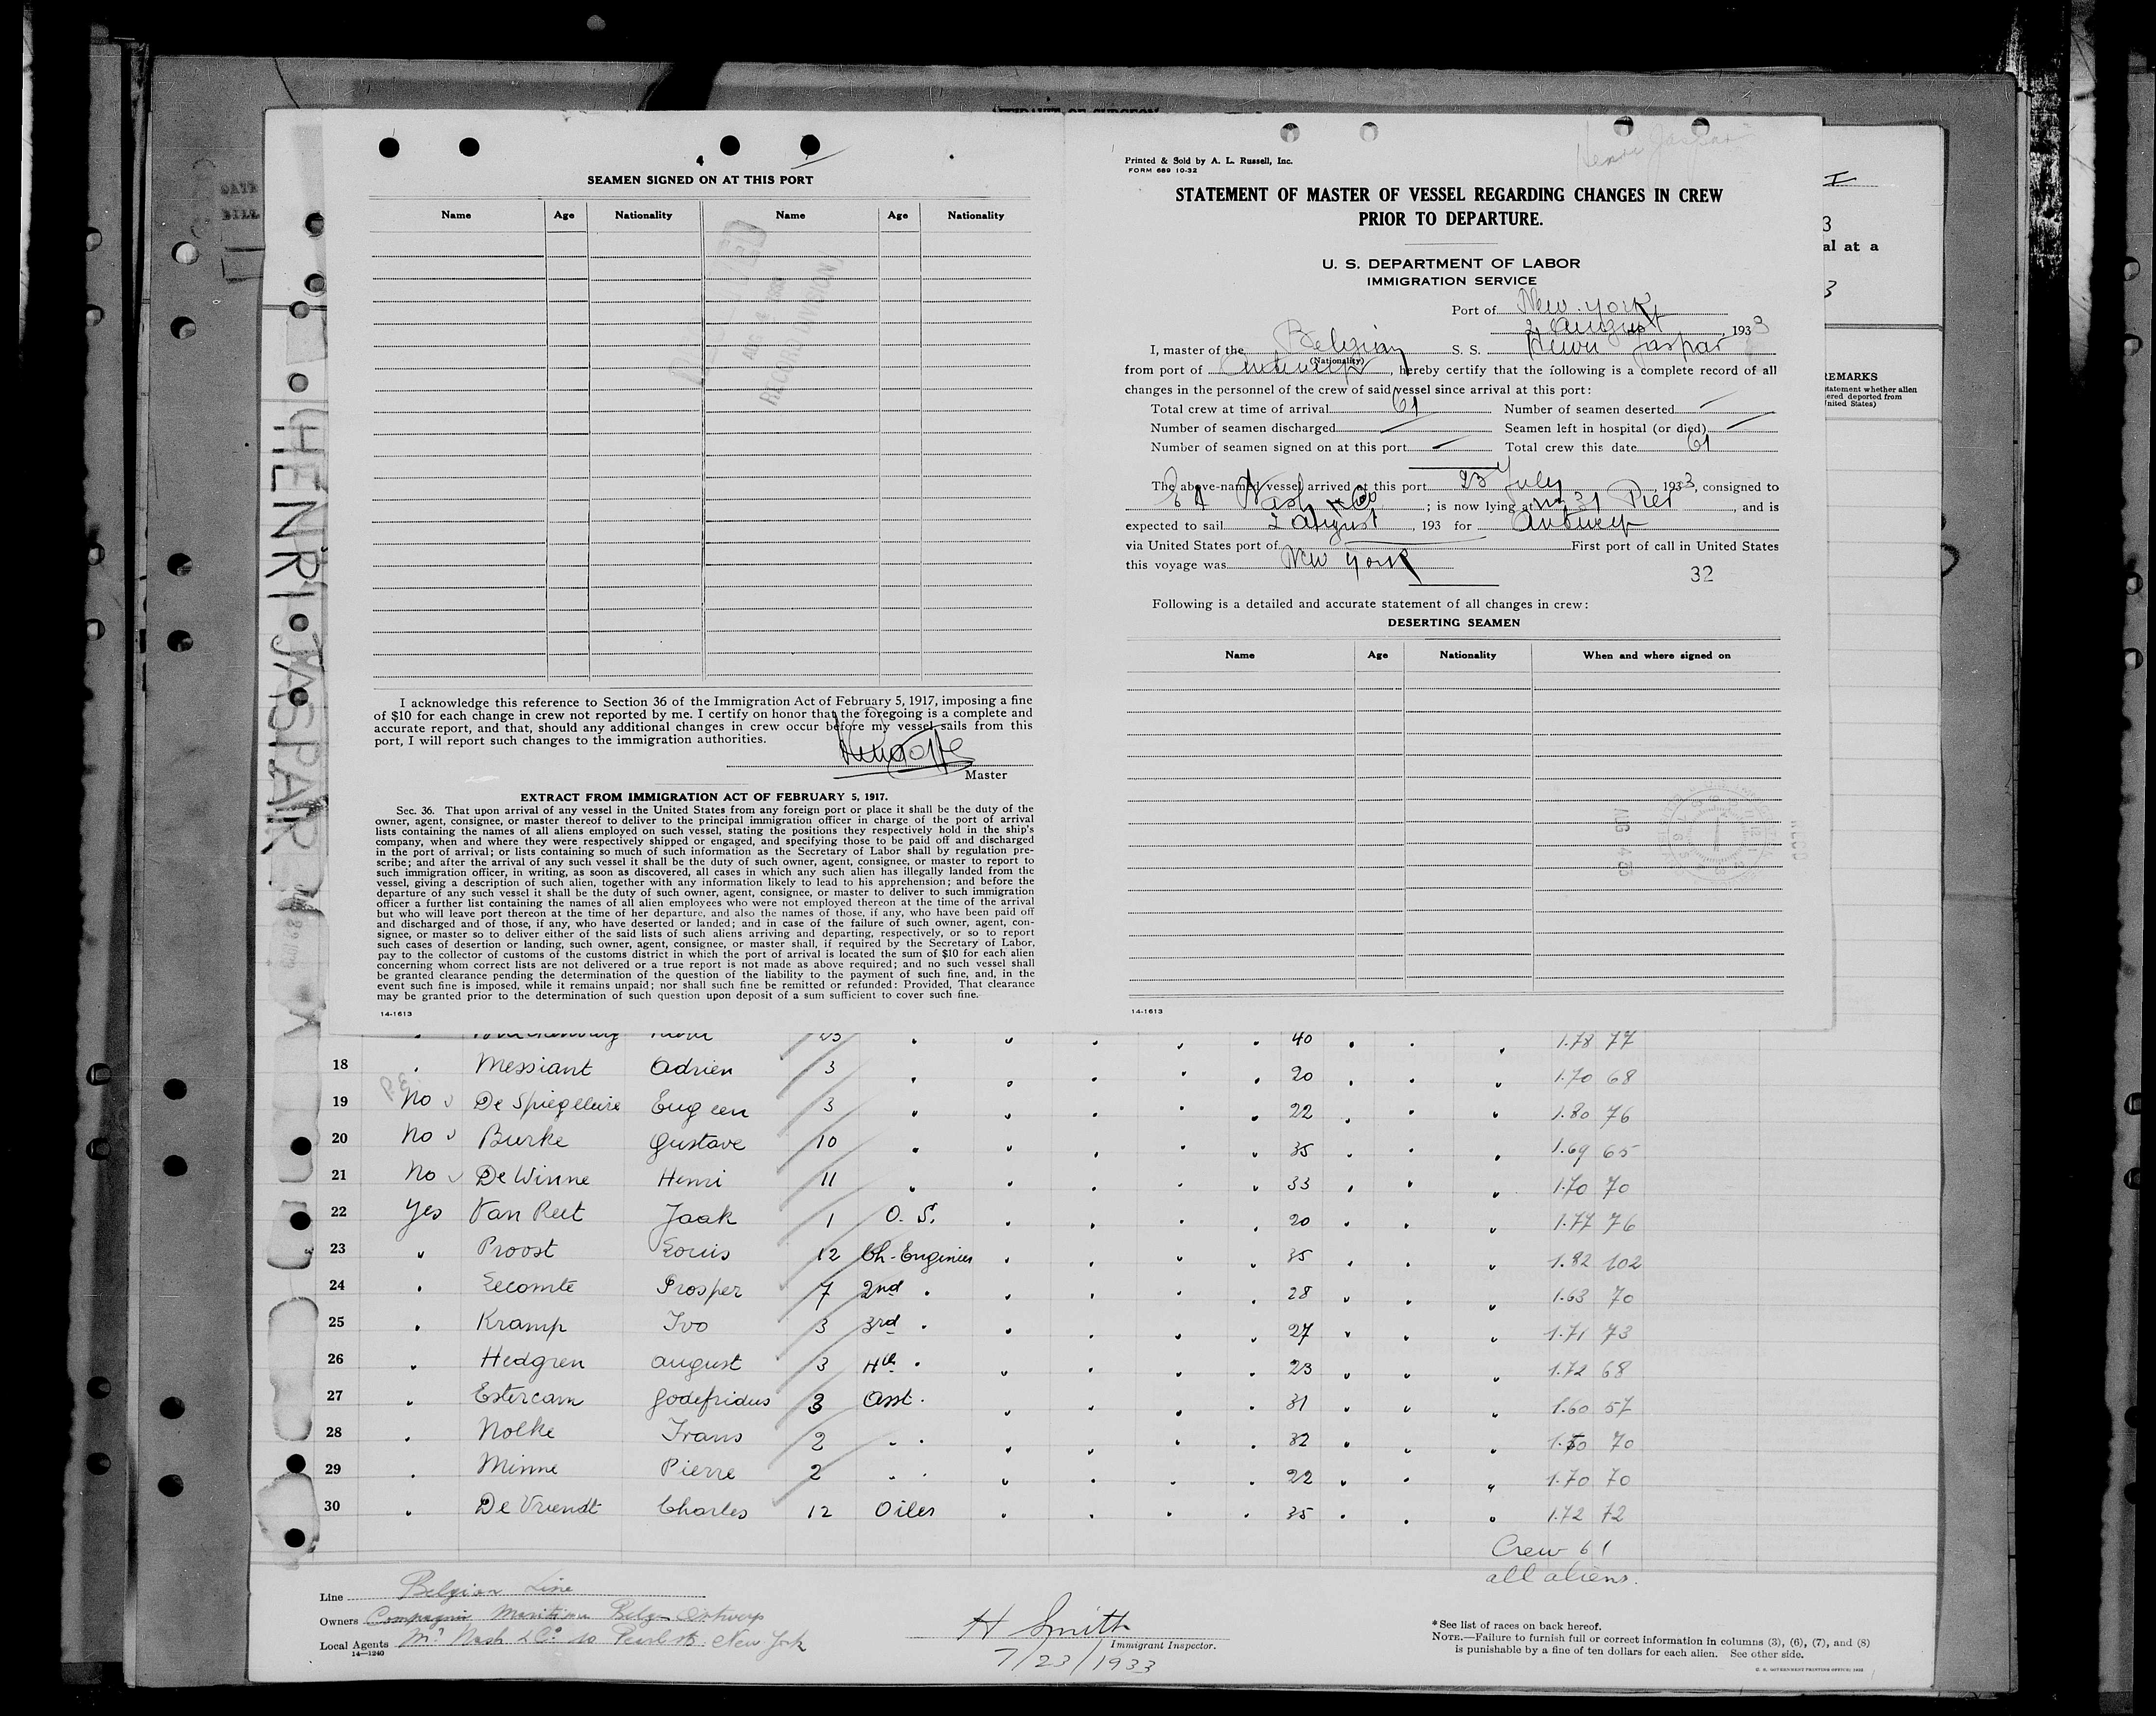 AFFIDAVIT OF SURGEON
4
SEAMEN SIGNED ON AT THIS PORT
Name Age Nationality Name Age Nationality
AUG 4
RECORD DIVISION
I acknowledge this reference to Section 36 of the Immigration Act of February 5, 1917, imposing a fine
of $10 for each change in crew not reported by me. I certify on honor that the foregoing is a complete and
accurate report, and that, should any additional changes in crew occur before my vessel sails from this
port, I will report such changes to the immigration authorities.
Master
EXTRACT FROM IMMIGRATION ACT OF FEBRUARY 5, 1917.
Sec. 36. That upon arrival of any vessel in the United States from any foreign port or place it shall be the duty of the
owner, agent, consignee, or master thereof to deliver to the principal immigration officer in charge of the port of arrival
lists containing the names of all aliens employed on such vessel, stating the positions they respectively hold in the ship's
company, when and where they were respectively shipped or engaged, and specifying those to be paid off and discharged
in the port of arrival; or lists containing so much of such information as the Secretary of Labor shall by regulation pre-
scribe; and after the arrival of any such vessel it shall be the duty of such owner, agent, consignee, or master to report to
such immigration officer, in writing, as soon as discovered, all cases in which any such alien has illegally landed from the
vessel, giving a description of such alien, together with any information likely to lead to his apprehension; and before the
departure of any such vessel it shall be the duty of such owner, agent, consignee, or master to deliver to such immigration
officer a further list containing the names of all alien employees who were not employed thereon at the time of the arrival
but who will leave port thereon at the time of her departure, and also the names of those, if any, who have been paid off
and discharged and of those, if any, who have deserted or landed; and in case of the failure of such owner, agent, con-
signee, or master so to deliver either of the said lists of such aliens arriving and departing, respectively, or so to report
such cases of desertion or landing, such owner, agent, consignee, or master shall, if required by the Secretary of Labor,
pay to the collector of customs of the customs district in which the port of arrival is located the sum of $10 for each alien
concerning whom correct lists are not delivered or a true report is not made as above required; and no such vessel shall
be granted clearance pending the determination of the question of the liability to the payment of such fine, and, in the
event such fine is imposed, while it remains unpaid; nor shall such fine be remitted or refunded: Provided, That clearance
may be granted prior to the determination of such question upon deposit of a sum sufficient to cover such fine.
14-1613
HENRI JASPAR
Henri Jaspar
Printed & Sold by A. L. Russell, Inc.
FORM 689 10-32
STATEMENT OF MASTER OF VESSEL REGARDING CHANGES IN CREW
PRIOR TO DEPARTURE.
U. S. DEPARTMENT OF LABOR
IMMIGRATION SERVICE
Port of New York
2 August, 1933
I, master of the Belgian S. S. Henri Jaspar
(Nationality)
from port of Antwerp, hereby certify that the following is a complete record of all
changes in the personnel of the crew of said vessel since arrival at this port:
Total crew at time of arrival 61 Number of seamen deserted —
Number of seamen discharged — Seamen left in hospital (or died) —
Number of seamen signed on at this port — Total crew this date 61
The above-named vessel arrived at this port 23 July, 1933, consigned to
Nash & Co; is now lying at No 31 Pier, and is
expected to sail 2 August, 193 for Antwerp
via United States port of — First port of call in United States
this voyage was New York
32
Following is a detailed and accurate statement of all changes in crew:
DESERTING SEAMEN
Name Age Nationality When and where signed on
AUG 4
14-1613
3
al at a
3
REMARKS
40 1.78 77
18 Messiant Adrien 3 20 1.70 68
19 No De Spiegeleire Eugeen 3 22 1.80 76
20 No Burke Gustave 10 35 1.69 65
21 No De Winne Henri 11 33 1.70 70
22 Yes Van Reet Jaak 1 O. S. 20 1.77 76
23 " Proost Louis 12 Ch. Engineer 35 1.82 102
24 " Lecomte Prosper 7 2nd " 28 1.63 70
25 " Kramp Ivo 3 3rd " 27 1.71 73
26 " Hedgren August 3 4th " 23 1.72 68
27 " Estercam Godefridus 3 Asst. 31 1.60 57
28 " Nolke Frans 2 " " 32 1.50 70
29 " Minne Pierre 2 " " 22 1.70 70
30 " De Vriendt Charles 12 Oiler 35 1.72 72
Crew 61
all aliens.
Line Belgian Line
Owners Compagnie Maritime Belge Antwerp
Local Agents Nash & Co 10 Pearl St. New York
14—1240
H Smith
Immigrant Inspector.
7/23/1933
*See list of races on back hereof.
NOTE.—Failure to furnish full or correct information in columns (3), (6), (7), and (8)
is punishable by a fine of ten dollars for each alien. See other side.
U. S. GOVERNMENT PRINTING OFFICE: 1932